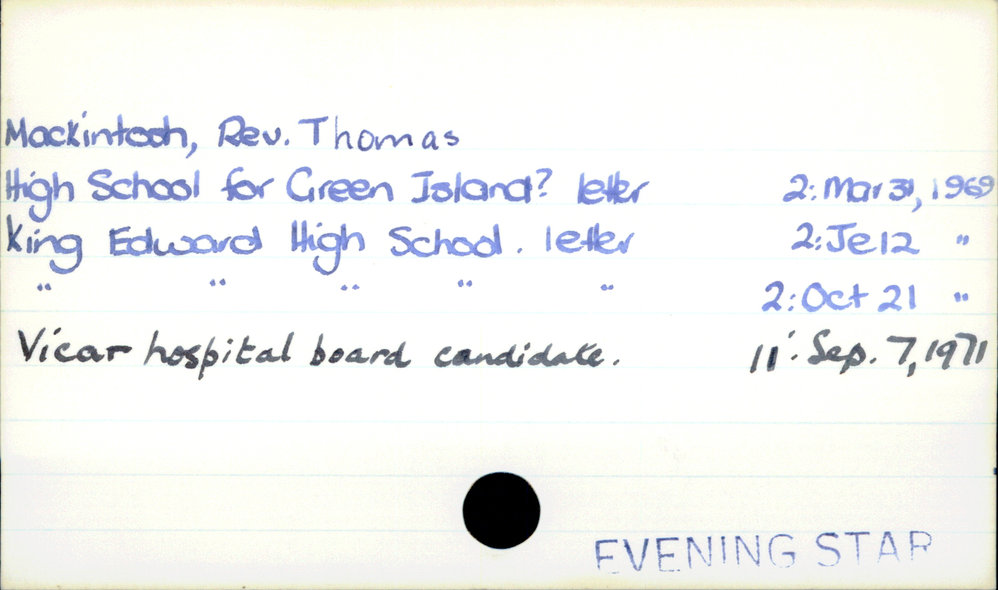 Mackintosh, Rev. Thomas
High School for Green Island? letter 2: Mar 31, 1969
King Edward High School. letter 2: Je 12 "
" " " " " 2: Oct 21 "
Vicar hospital board candidate. 11: Sep. 7, 1971
EVENING STAR